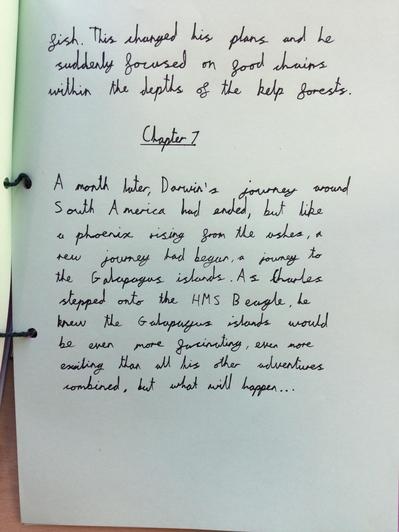 fish. This changed his plans and he
suddenly focused on food chains
within the depths of the kelp forests.
Chapter 7
A month later, Darwin's journey around
South America had ended, but like
a phoenix rising from the ashes, a
new journey had begun, a journey to
the Galapagus islands. As Charles
stepped onto the HMS Beagle, he
knew the Galapagus islands would
be even more fascinating, even more
exciting than all his other adventures
combined, but what will happen...